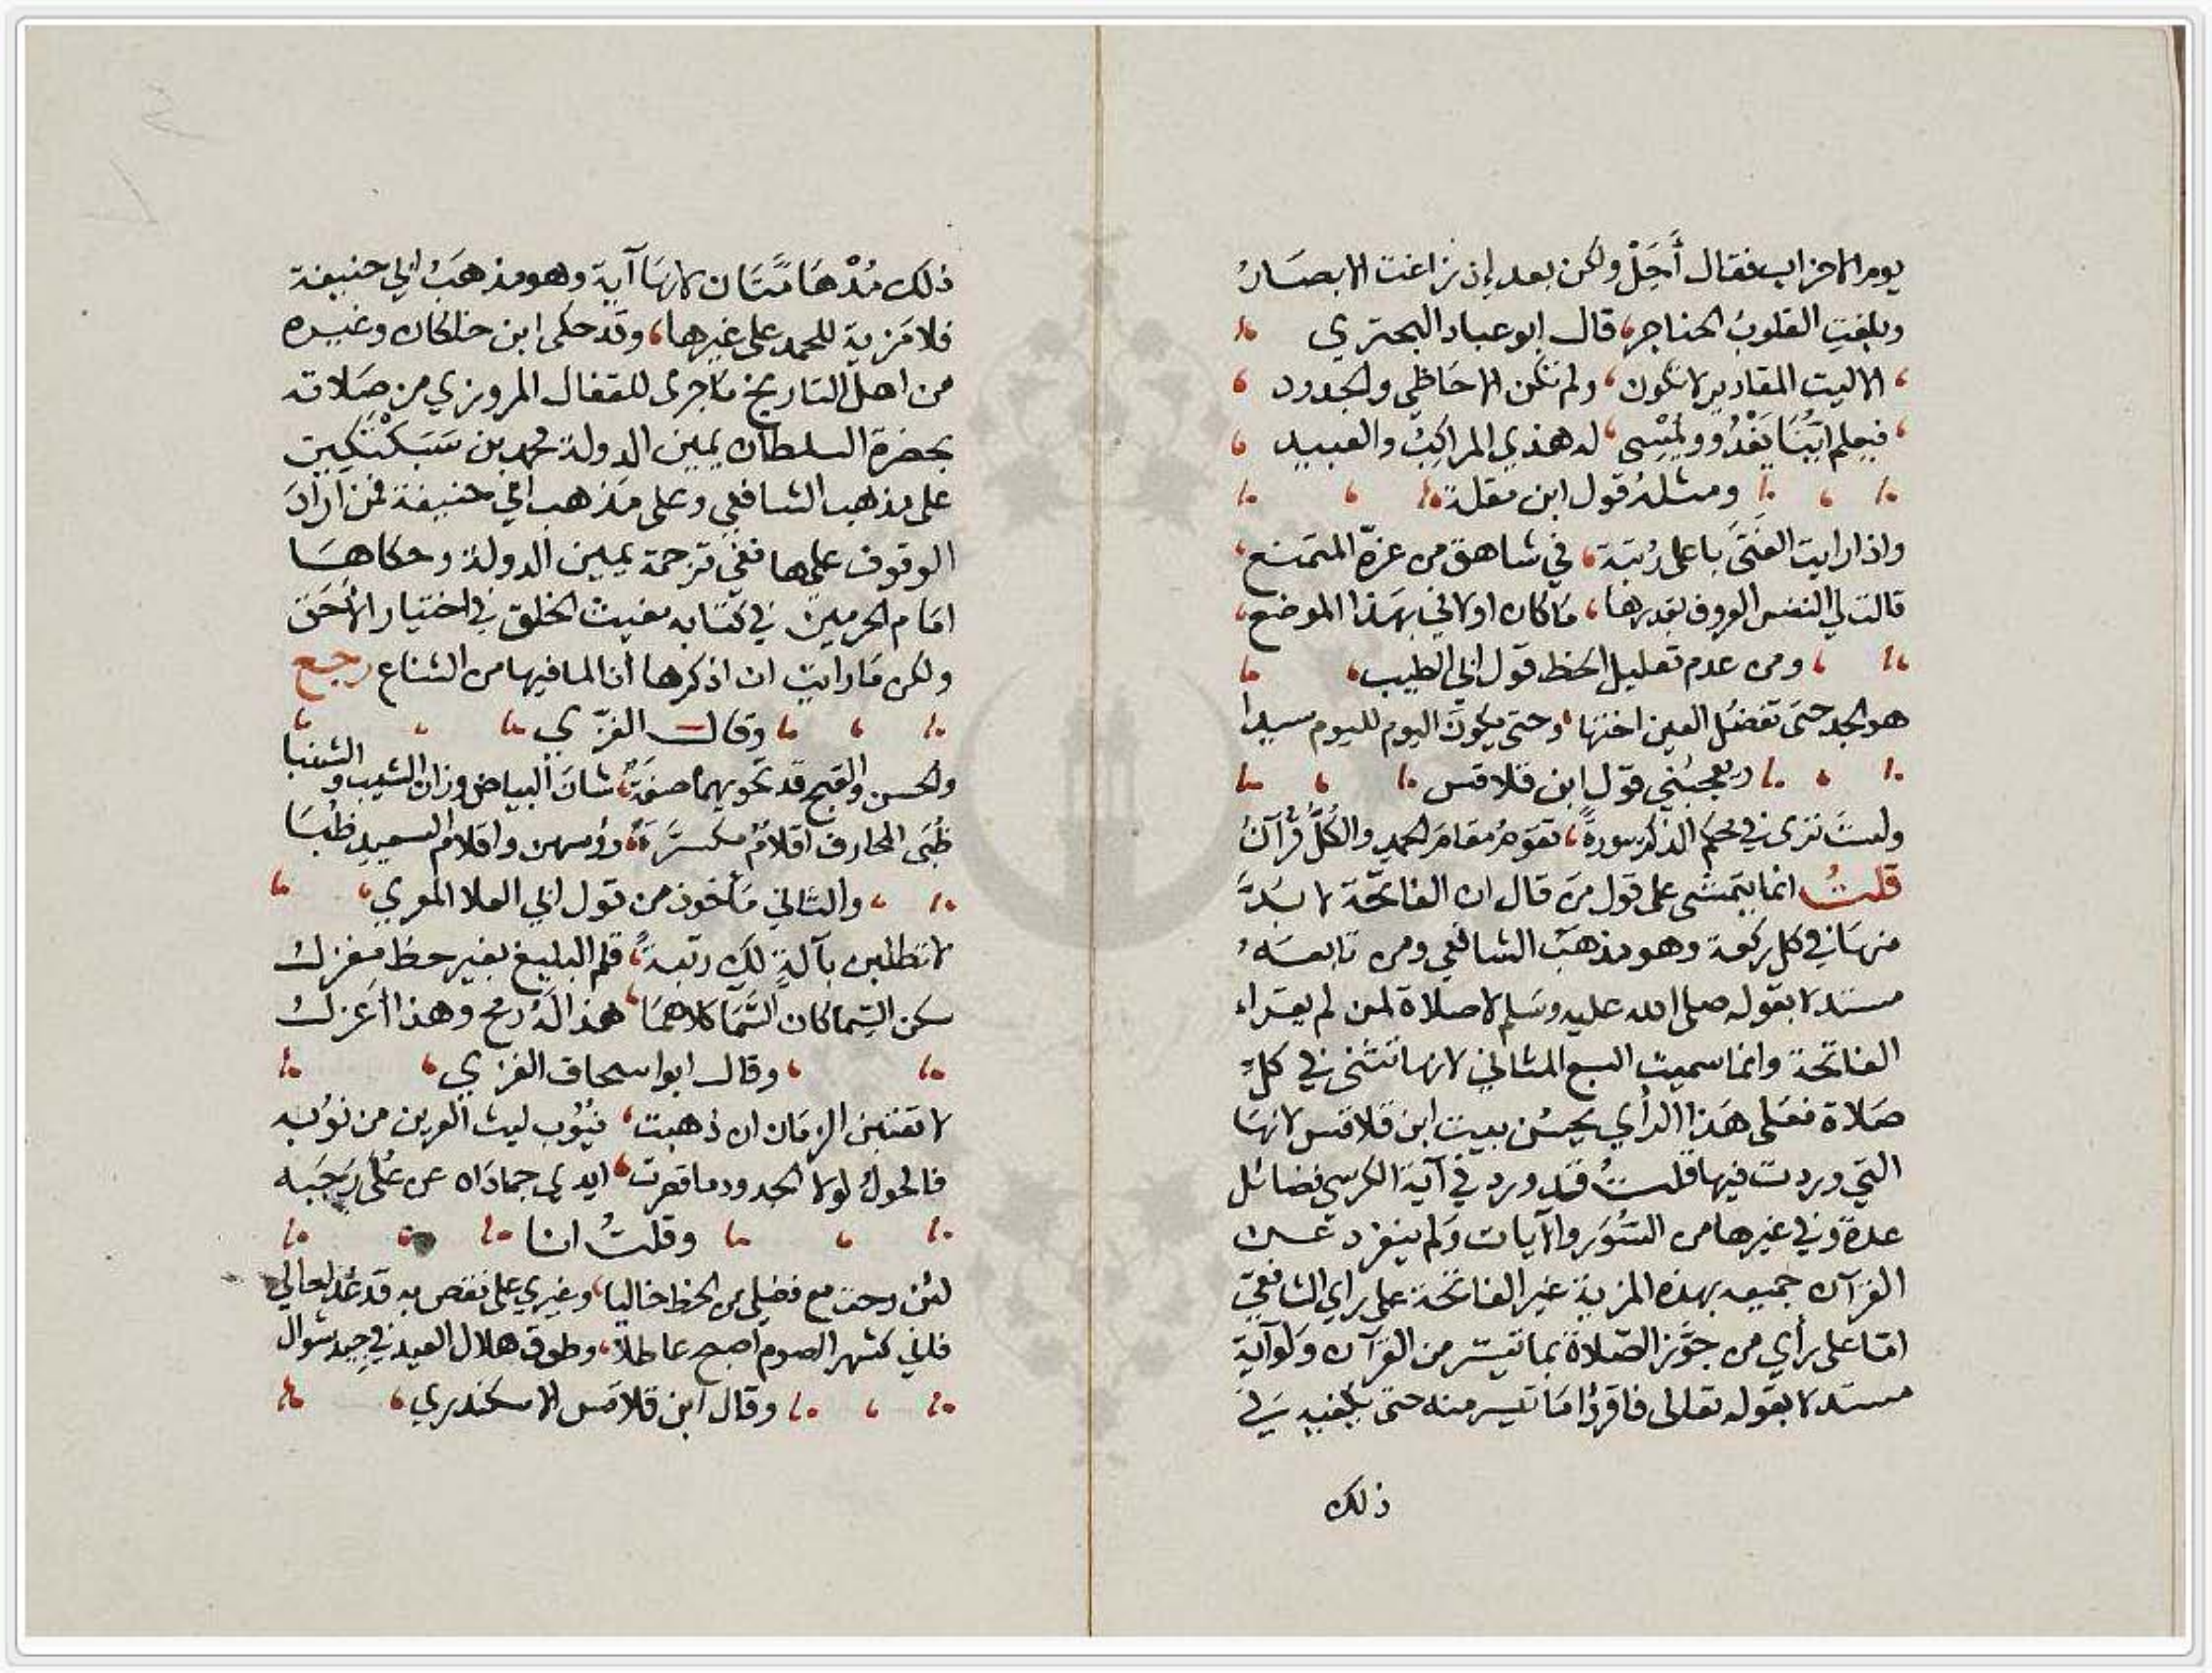 يوم الاحزاب فقال أَجَلْ ولكن بعد إذ زاغت الابصارُ
وبلغت القلوبُ الحناجر، قال ابو عباد البحتري
الا ليت المقادير لا تكون، ولم تكن الاحاظي والجدود
فيعلم ايّنا يَغْدُو ويُمْسِى، له هذي المراكبُ والعبيد
ومثلهُ قول ابن مقلة
واذا رايت الفتَى باعلى رُتبَة، في شاهق من عزة المتمنع
قالت لي النفس العروف بقدرها، ما كان اولاني بهَذا الموضع
ومن عدم تعليل الحظ قول ابي الطيب
هو الجد حتى تفضُل العين اختها، وحتى يكون اليوم لليوم سيدا
ويعجبُني قول ابن قلاقس
ولستَ ترى في محكم الذكر سورةً، تقوم مقام الحمد والكُلُّ قُرآنُ
قلتُ انما يتمشى على قول مَن قال ان الفاتحَة لا بُدّ
منهَا في كل ركعة وهو مذهَب الشافعي ومن تابعَهُ
مستدلا بقوله صلى الله عليه وسَلم لا صلاة لمن لم يقراء
الفاتحة وانما سميت السبع المثاني لانها تثنى في كلِّ
صَلاة فعَلى هَذا الرأي يحسُن بيت ابن قلاقس لانهَا
التي وردت فيها قلتُ قد ورد في آية الكرسي فضائل
عدة وفي غيرها من السُّوَر والآيات وَلم ينفرد عَن
القرآن جميعه بهذه المزية غير الفاتحة على راي الشافعيّ
امّا على رأي من جوَّز الصّلاة بما تيسّر من القرآن وَلو آية
مستدلا بقوله تعالى فاقرؤا مَا تيسر منه حتى يكفيه في
ذلك
ذلك مُدْهَامَّتَان لانهَا آية وهو مذهَبُ ابي حنيفة
فلا مَزية للحمد على غيرها، وقد حكى ابن خلكان وغيره
من اهل التاريخ مَا جرى للقفال المروزي من صَلاته
بحضرة السلطان يمين الدولة محمد بن سَبَكْتَكِين
على مذهب الشافعي وعلى مَذهب ابي حنيفة فمن ارَادَ
الوقوف عليها ففي ترجمة يمين الدولة وحكاهَا
امَام الحرمين في كتابه مغيث الخلق في اختيار الاَحَق
ولكن مَا رايت ان اذكرها لما فيها من الشناع رجع
وقال الغزّي
والحسن والقبح قد تحويهما صفَةٌ، شان البياض وزان الشيب والشنبا
ظُبَى المحارف اقلامٌ مكسّرَةٌ، رؤسهن واقلام السعيد ظُبَا
والثاني مَأخوذ من قول ابي العلا المعري
لا تطلبن بآلةٍ لك رتبةً، قلم البليغ بغير حظ مغزلُ
سكن السِّماكان السَّمَا كلاهمَا، هذا لهُ رمح وهذا اعزلُ
وقال ابو اسحاق الغزي
لا تعتبن الزمَان ان ذهبت، نيُوب ليث العرين من نوَبِه
فالحولُ لولا الجدود ما قصرت، ايدي جمادَاه عن عُلَى رَجَبِه
وقلتُ انا
لئن رحت مع فضلي من الحظ خاليا، وغيري على نقص به قد غدا حالي
فاني كشهر الصوم اصبح عاطلا، وطوق هلال العيد في جيد شوال
وقال ابن قلاقس الاسكندري